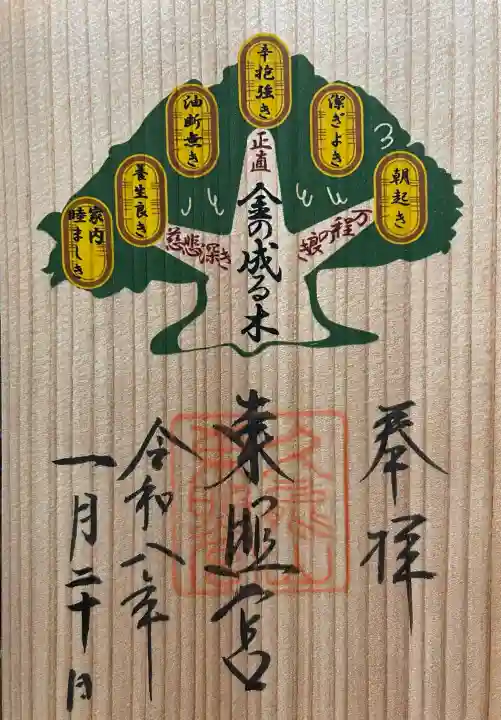 朝起き
潔ぎよき
辛抱強き
油断無き
養生良き
家内
睦ましき
正直
万程の
慈悲深き
金の成る木
奉拝
東照宮
令和八年
一月二十日